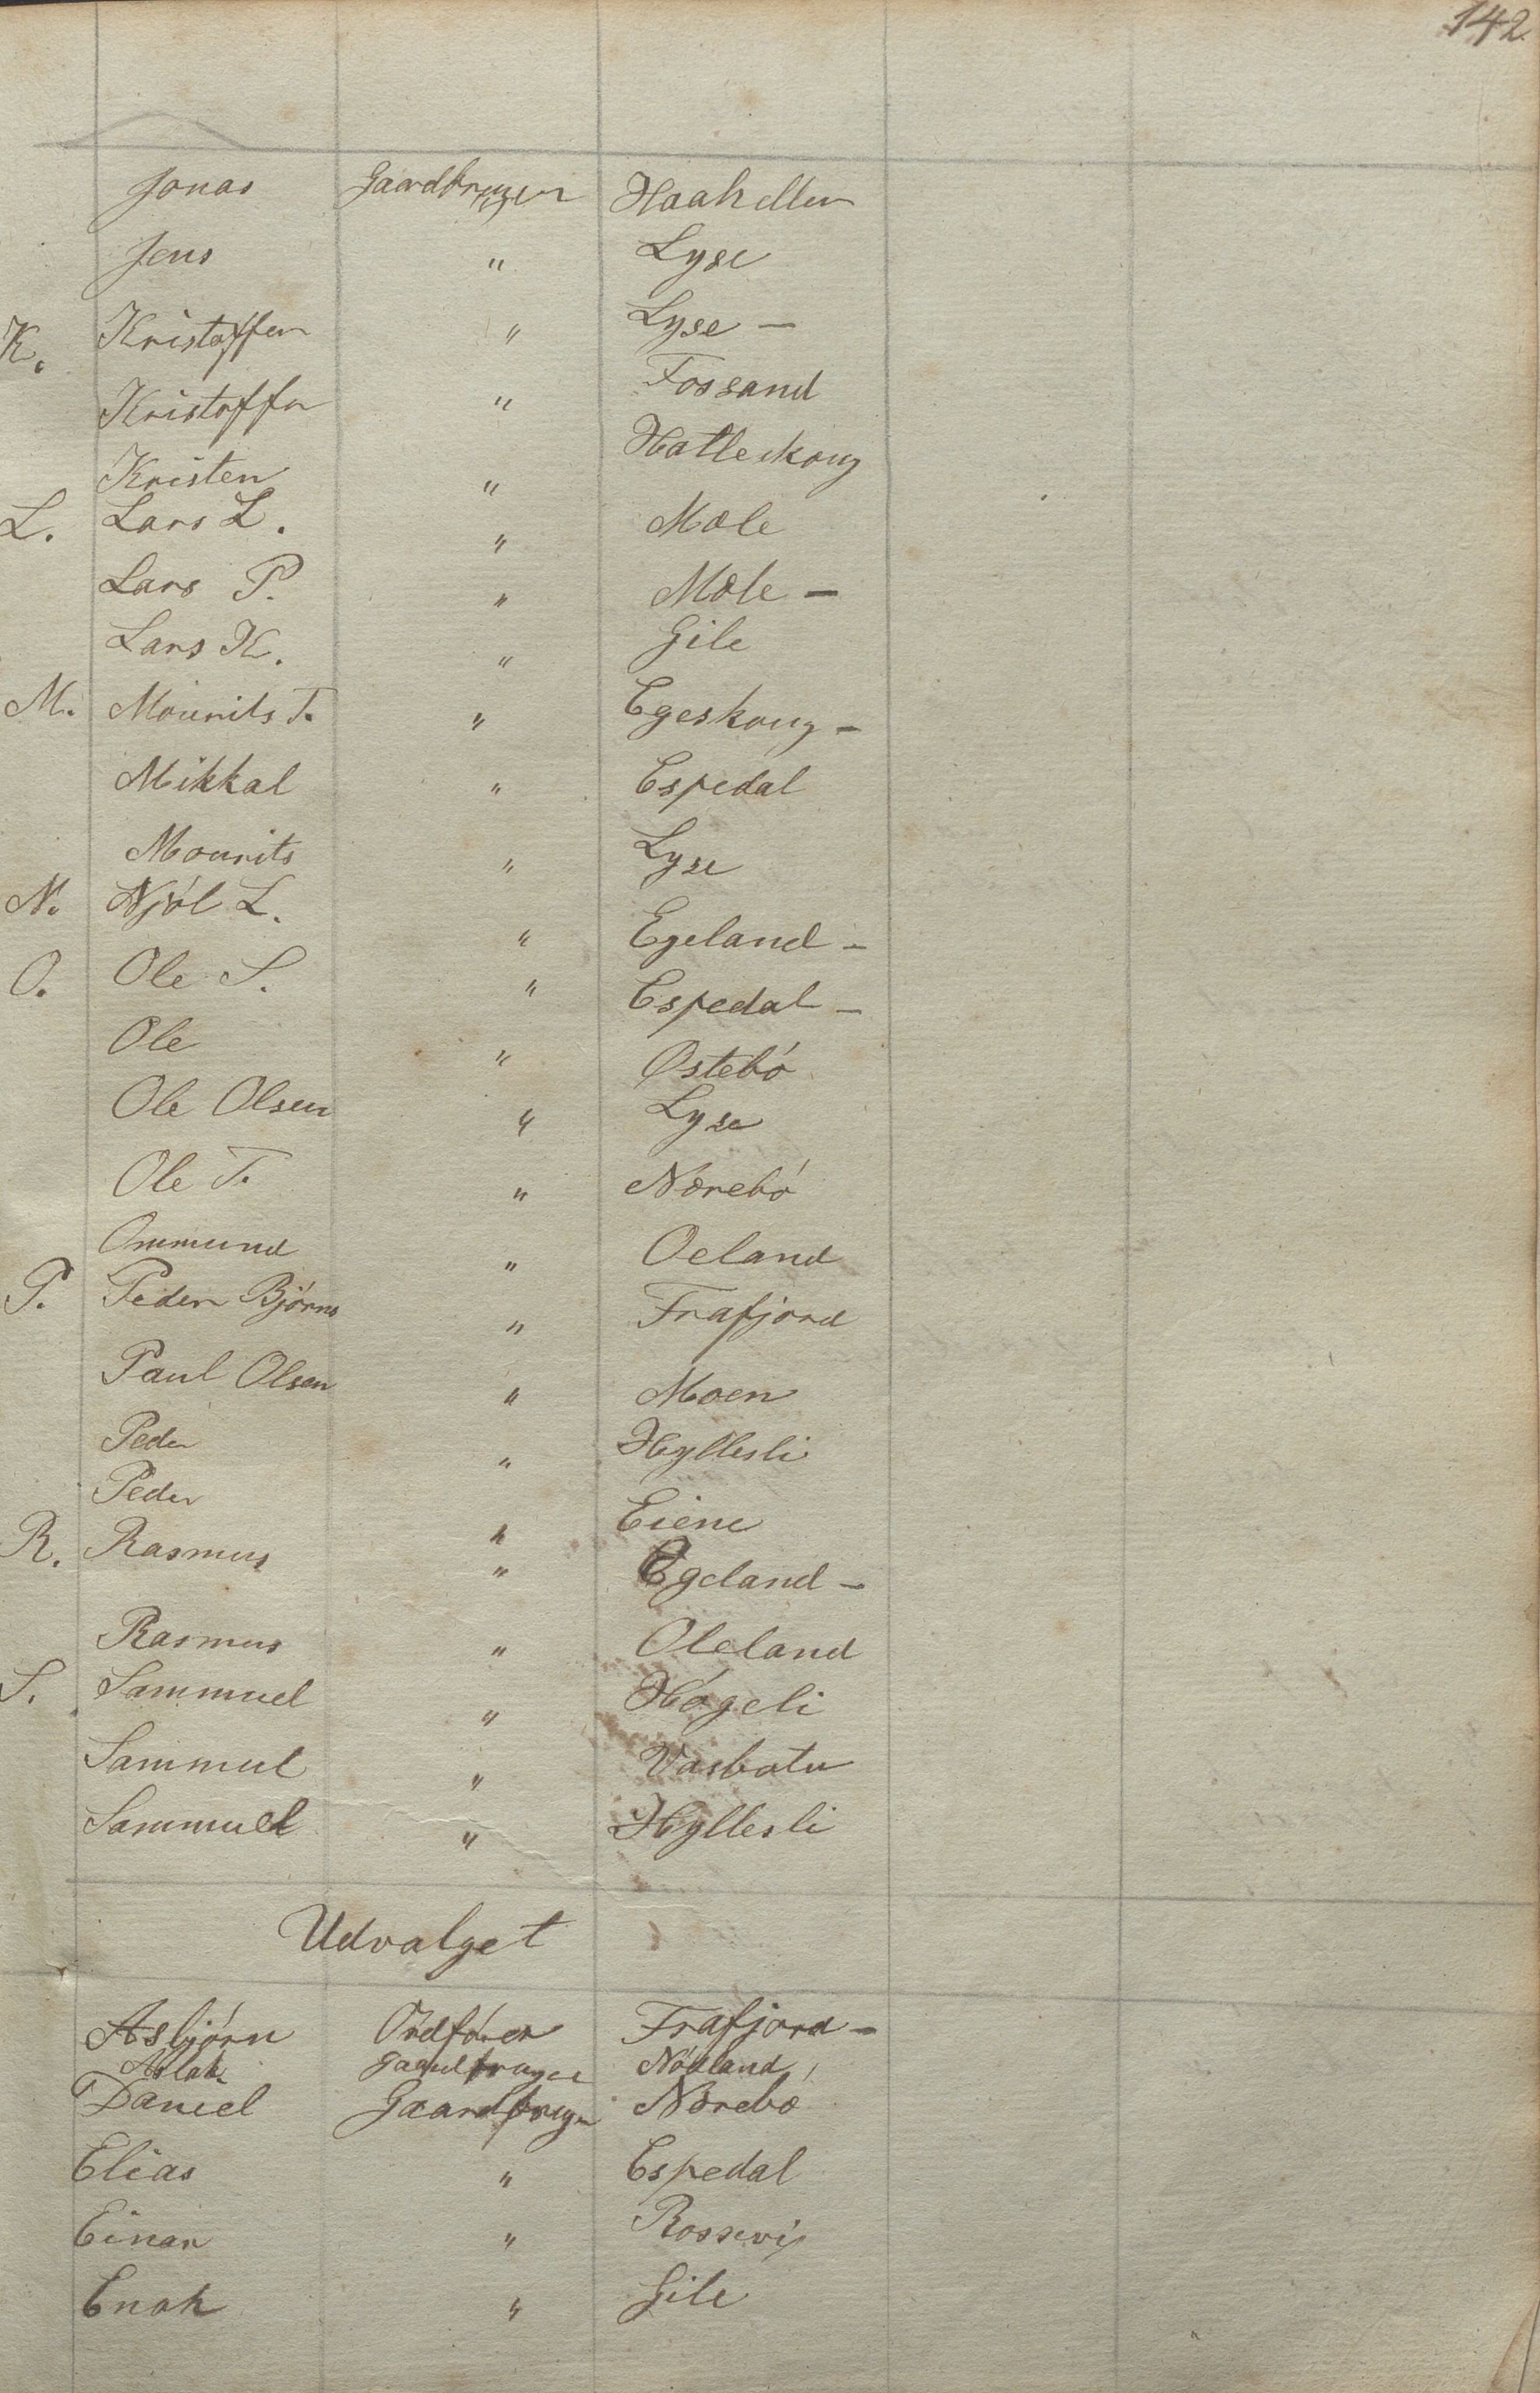 142.
Jonas Gaardbruger Haaheller
Jens " Lyse
K. Kristoffer " Lyse –
Kristoffer " Fossand
Kristen " Hatleskoug
L. Lars L. " Mæle
Lars P. " Mæle –
Lars K. " Gile
M. Mourits T. " Egeskoug –
Mikkal " Espedal
Mourits " Lyse
N. Njól L. " Egeland –
O. Ole S. " Espedal –
Ole " Østebó
Ole Olsen " Lyse
Ole T. " Nærebó
Ommund " Oeland
P. Peder Bjórns " Frafjord
Paul Olsen " Moen
Peder " Hyllesli
Peder " Eiene
R. Rasmus " Egeland –
Rasmus " Oleland
S. Sammuel " Hógeli
Sammuel " Vasbotn
Sammuel " Hyllesli
Udvalget
Asbjórn Ordfórer Frafjord –
Aslak Gaardbruger Nódland
Daniel Gaardbruger Nærebó
Elias " Espedal
Einar " Rossevig
Enok " Gile